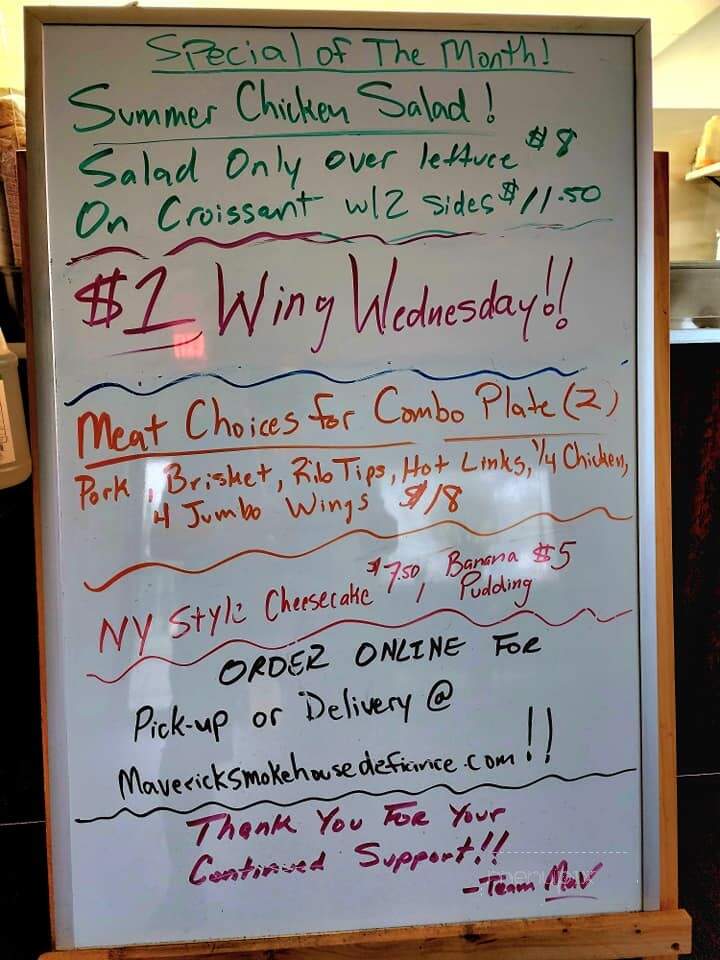 Special of The Month!
Summer Chicken Salad!
Salad Only over lettuce $8
On Croissant w/2 sides $11.50
$1 Wing Wednesday!!
Meat Choices for Combo Plate (2)
Pork, Brisket, Rib Tips, Hot Links, 1/4 Chicken,
4 Jumbo Wings $18
NY Style Cheesecake $7.50, Banana Pudding $5
ORDER ONLINE FOR
Pick-up or Delivery @
Mavericksmokehousedefiance.com!!
Thank You For Your
Continued Support!!
-Team Mav